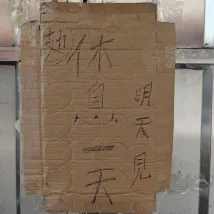 休息一天
明天見